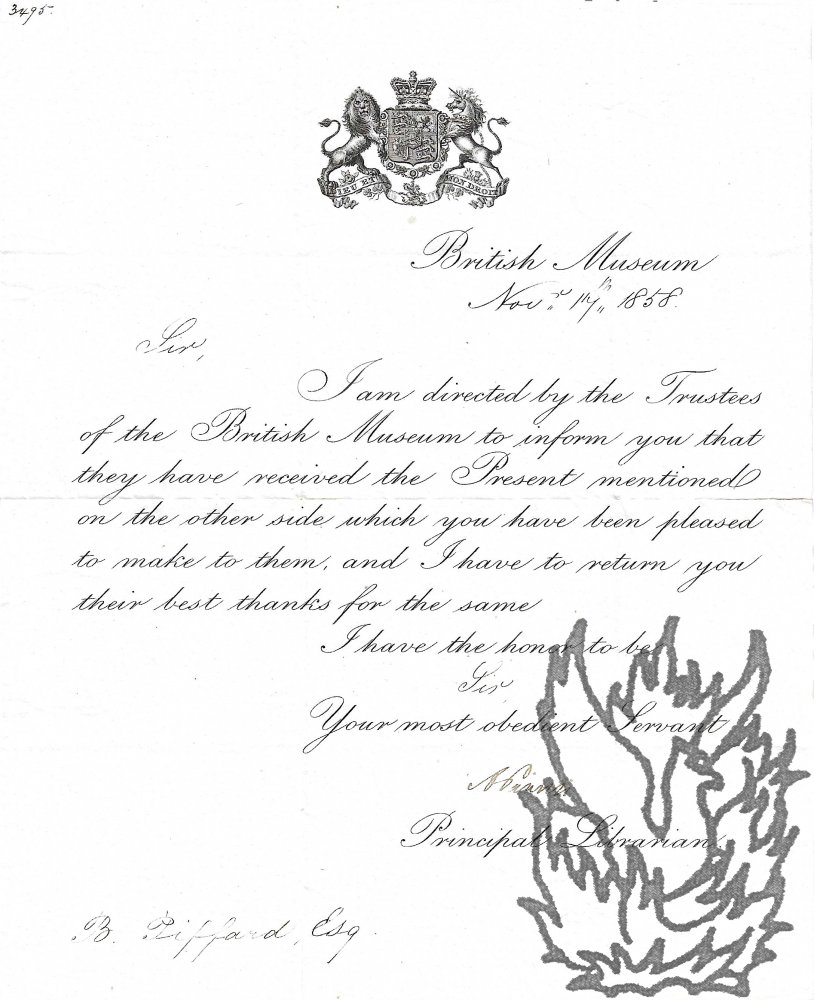 3495.
DIEU ET MON DROIT
British Museum
Novr. 17th 1858.
Sir,
I am directed by the Trustees
of the British Museum to inform you that
they have received the Present mentioned
on the other side which you have been pleased
to make to them, and I have to return you
their best thanks for the same
I have the honor to be
Sir
Your most obedient Servant
Principal Librarian.
B. Piffard, Esq.